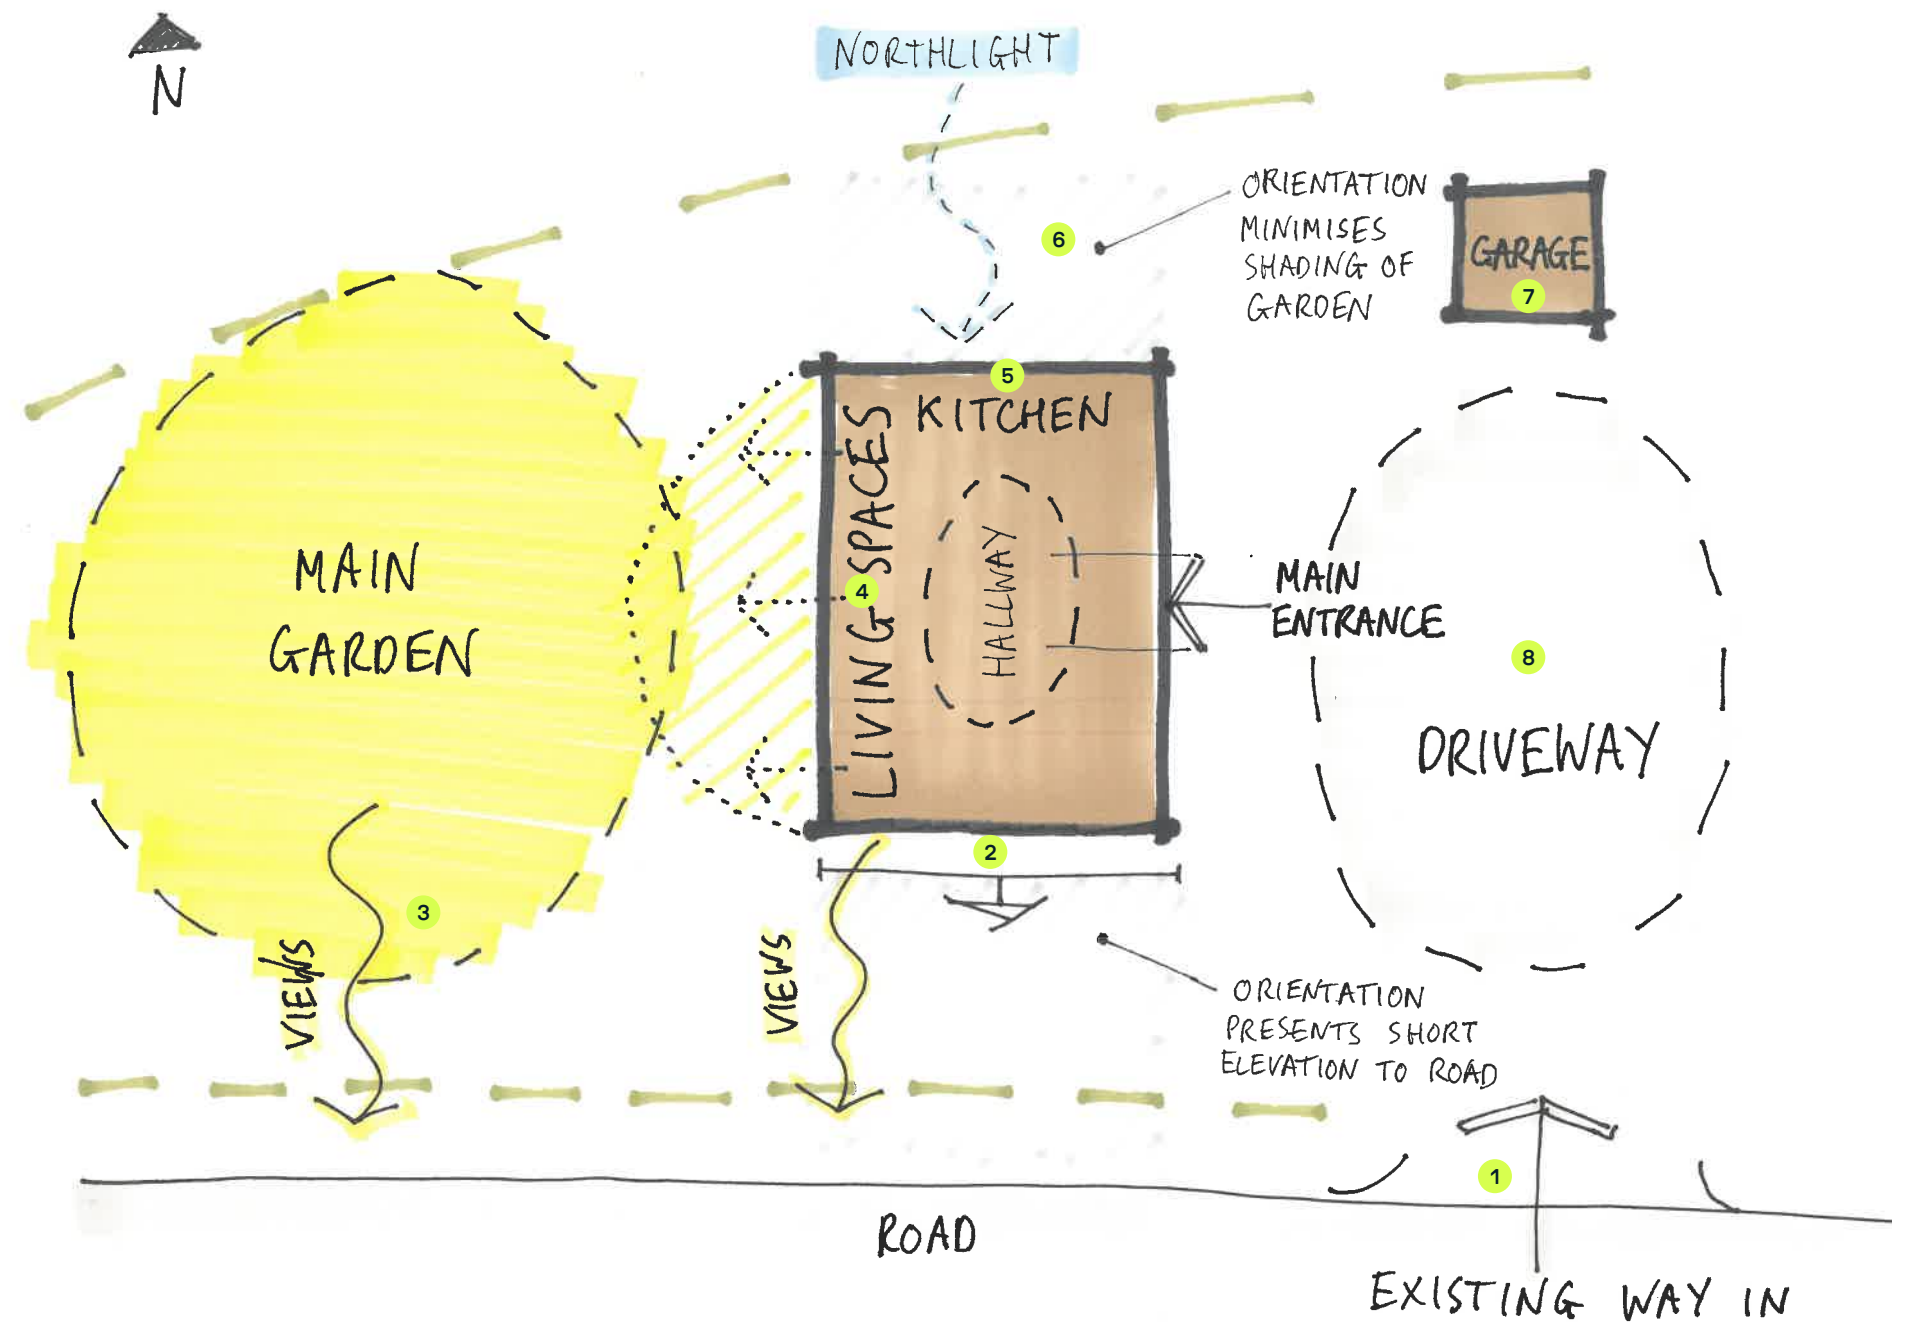 N
NORTHLIGHT
ORIENTATION
MINIMISES
SHADING OF
GARDEN
6
GARAGE
7
5
KITCHEN
LIVING SPACES
4
HALLWAY
MAIN
GARDEN
MAIN
ENTRANCE
8
DRIVEWAY
2
3
VIEWS
VIEWS
ORIENTATION
PRESENTS SHORT
ELEVATION TO ROAD
1
ROAD
EXISTING WAY IN